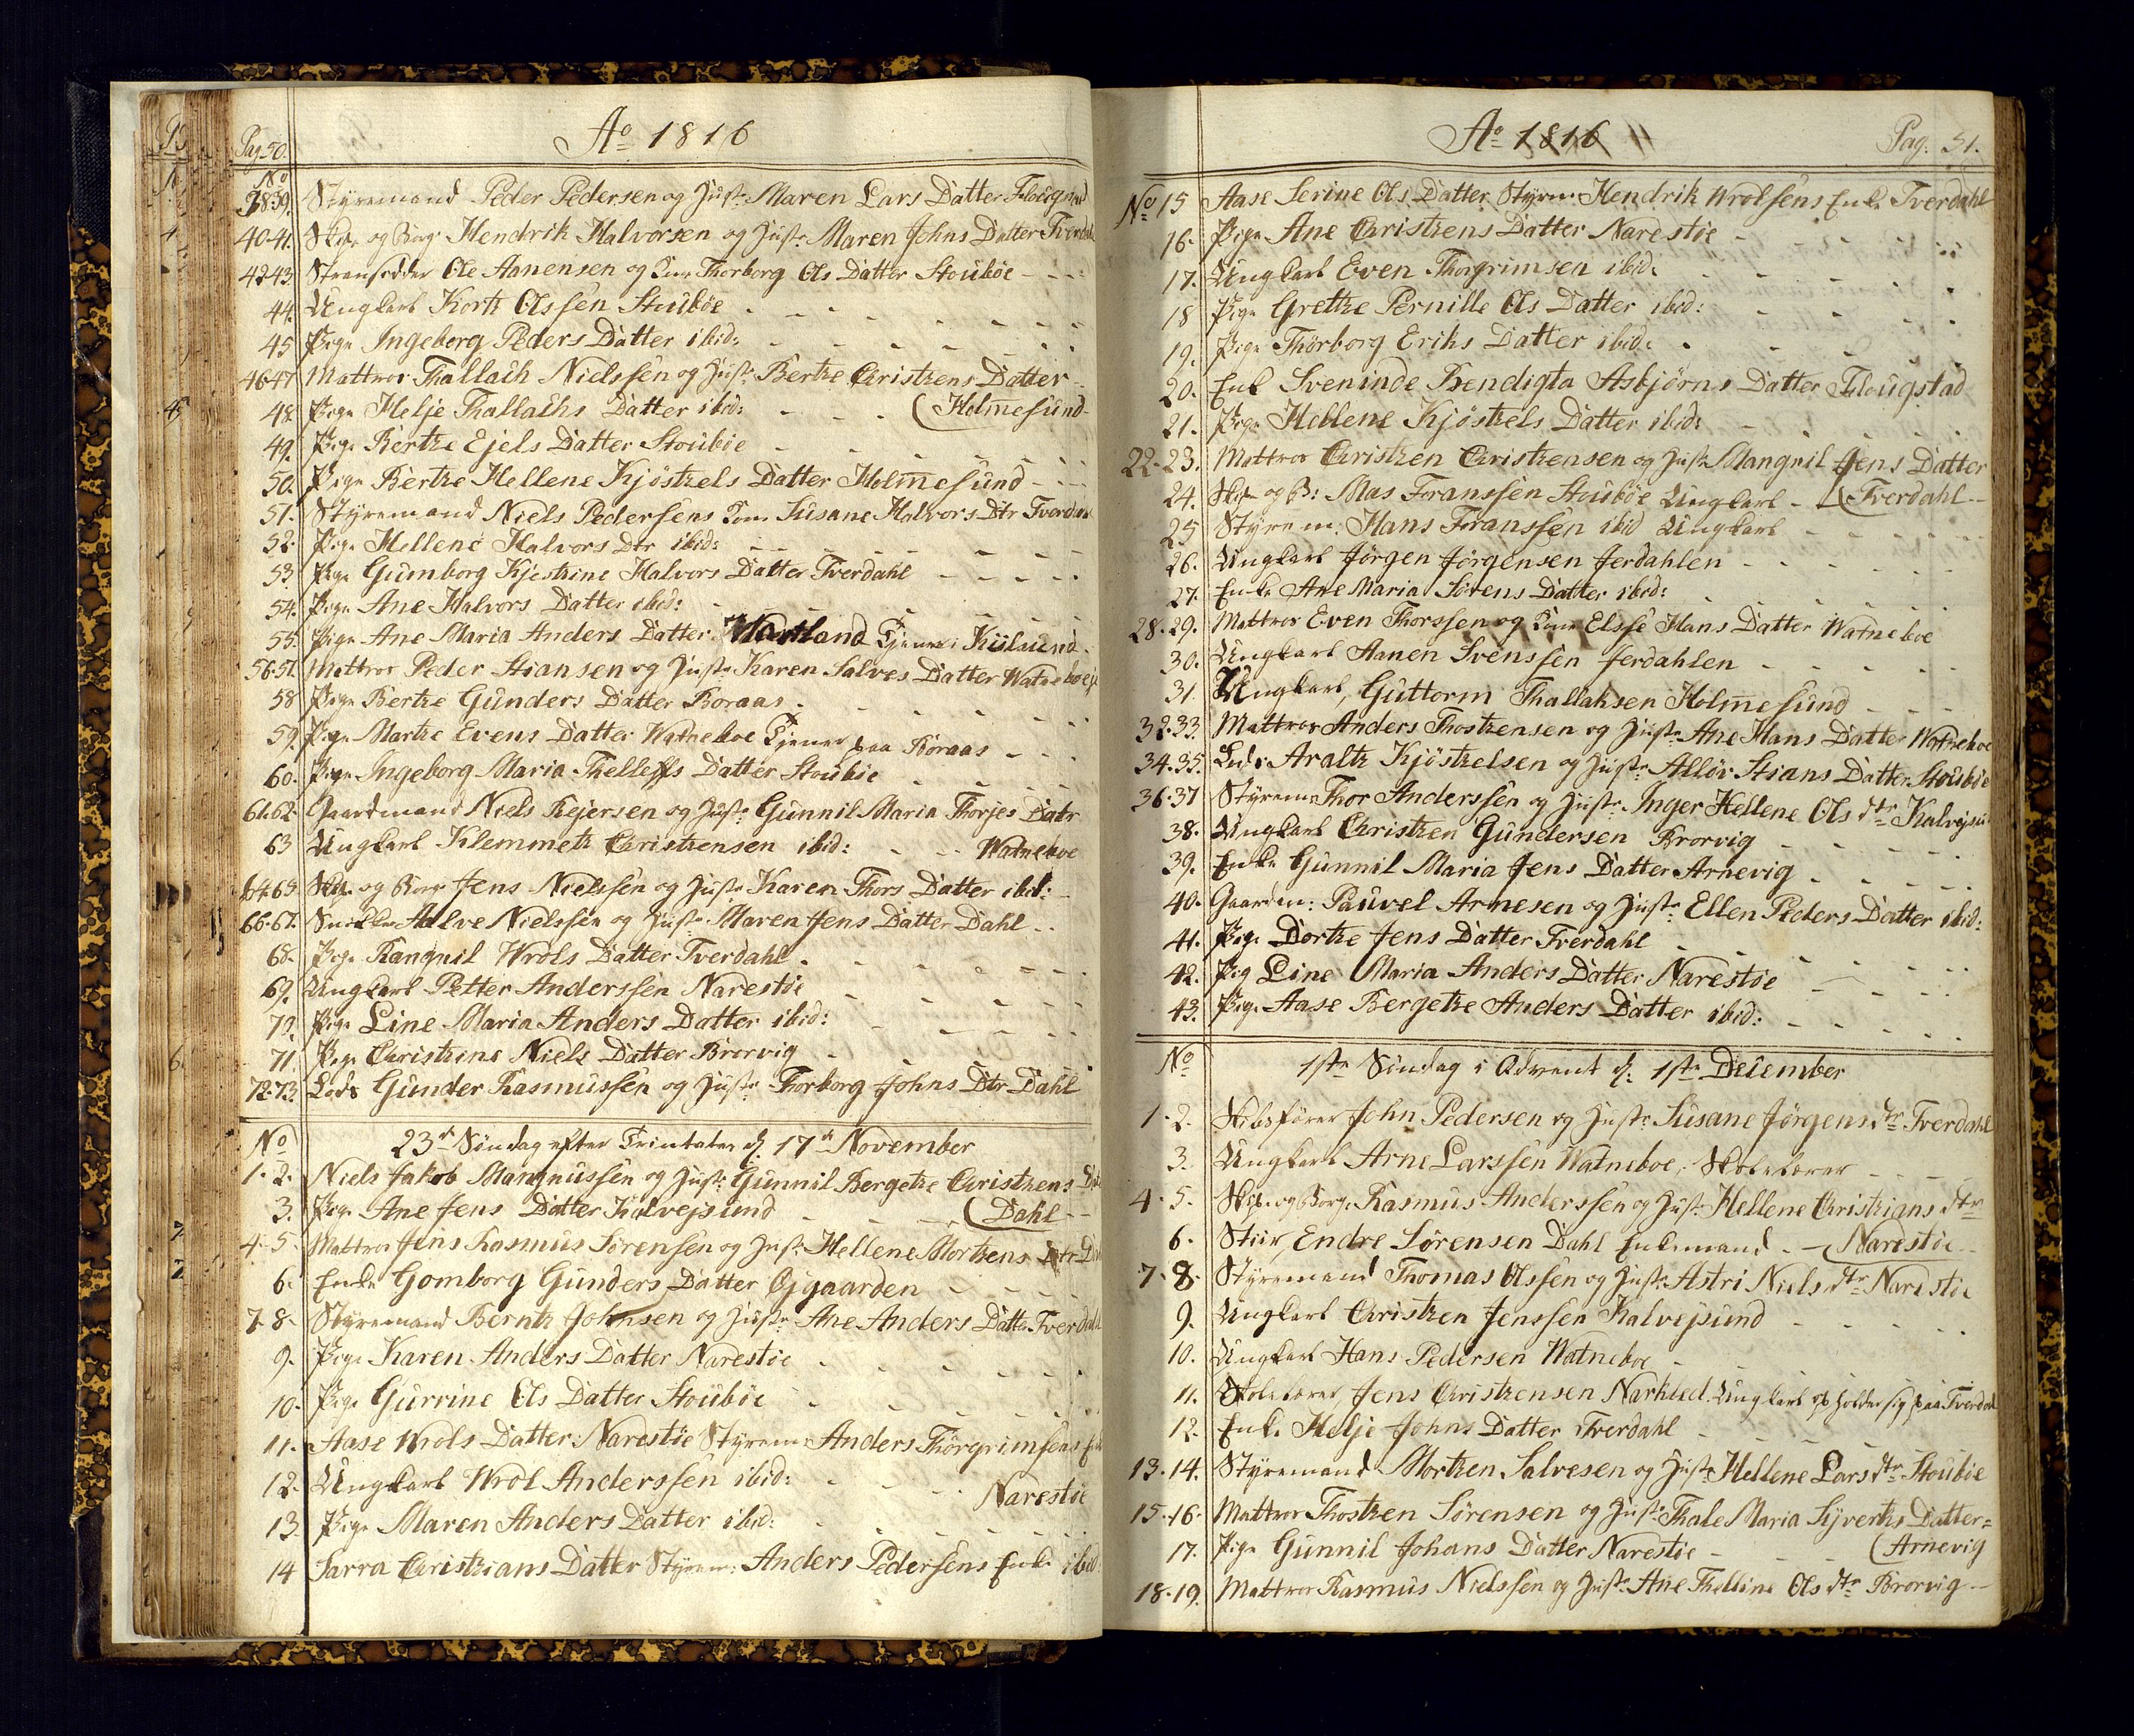 Pag. 50.
Ao 1816
No
38.39. Styremand Peder Pedersen og Hustr: Maren Lars Datter Flougstad
40-41. Skip: og Borg: Hendrik Halvorsen og Hustr: Maren Johns Datter Tverdahl
42-43. Stransidder Ole Aanensen og Kone Thorborg Ols Datter Stoubøe
44. Ungkarl Kortz Olssen Stoubøe
45 Pige Ingeborg Peders Datter ibid:
46-47 Mattros Thallach Nielssen og Hustr: Bertze Christzens Datter
48. Pige Helje Thallachs Datter ibid: (Holmesund
49. Pige Bertze Ejels Datter Stoubøe
50. Pige Bertze Hellene Kjøstzels Datter Holmesund
51. Styremand Niels Pedersens Kone Susane Halvors Dtr Tverdahl
52. Pige Hellene Halvors Dtr ibid:
53. Pige Gumborg Kjestzine Halvors Datter Tverdahl
54. Pige Ane Halvors Datter ibid:
55. Pige Ane Maria Anders Datter Tjener Kiilsund
56-57. Mattros Peder Stiansen og Hustr: Karen Salves Datter Watneboe
58 Pige Bertze Gunders Datter Boraas
59. Pige Martze Evens Datter Watneboe Tjener paa Boraas
60. Pige Ingeborg Maria Thelleffs Datter Stoubøe
61.62. Gaardmand Niels Rejersen og Hustr: Gunnil Maria Thorjes Datr
63 Ungkarl Klemmetz Christzensen ibid: Watneboe
64-65 Skip: og Borg: Jens Nielssen og Hustr: Karen Thors Datter ibid:
66-67. Snikker Aalve Nielssen og Hustr: Maren Jens Datter Dahl
68. Pige Rangnil Wrols Datter Tverdahl
69. Ungkarl Petter Anderssen Narestøe
70. Pige Line Maria Anders Datter ibid:
71. Pige Christzine Niels Datter Brorvig
72-73. Lods Gunder Rasmussen og Hustr: Thorborg Johns Dtr Dahl
No 23de Søndag efter Trinitates d: 17de November
1-2. Niels Jakob Mangnussen og Hustr: Gunnil Bergetze Christzens Dtr
3. Pige Ane Jens Datter Kalvejsund (Dahl
4-5. Mattros Jens Rasmus Sørensen og Hustr: Hellene Mortzens Dtr
6. Enke Gomborg Gunders Datter Øjgaarden
7-8. Styremand Berntz Johnsen og Hustr: Ane Anders Datter Tverdahl
9. Pige Karen Anders Datter Narestøe
10. Pige Gurrine Ols Datter Stoubøe
11. Aase Wrols Datter Narestøe Styrem: Anders Thorgrimsens Enke
12. Ungkarl Wrol Anderssen ibid: Narestøe
13. Pige Maren Anders Datter ibid:
14 Sarra Christzians Datter Styrem: Anders Pedersens Enke ibid
Ao 1816
Pag. 51.
No 15 Aase Serine Ols Datter Styrm: Hendrik Wrolsens Enke Tverdahl
16. Pige Ane Christzens Datter Narestøe
17. Ungkarl Even Thorgrimsen ibid:
18 Pige Grethe Pernille Ols Datter ibid:
19. Pige Thorborg Eriks Datter ibid:
20. Enk Sveninde Bendigta Asbjørns Datter Flougstad
21. Pige Hellene Kjøstzels Datter ibid:
22-23. Mattros Christzen Christzensen og Hustr: Mangnil Jens Datter
24. Skip: og B: Mas Franssen Stoubøe Ungkarl (Tverdahl
25 Styrem: Hans Franssen ibid Ungkarl
26. Ungkarl Jørgen Jørgensen Jerdahlen
27. Enke Ane Maria Sørens Datter ibid:
28.29. Mattros Even Thorssen og Kone Elsse Hans Datter Watneboe
30. Ungkarl Aanen Svenssen Jerdahlen
31. Ungkarl Guttorm Thallaksen Holmesund
32.33. Mattros Anders Thostzensen og Hustr: Ane Hans Datter Watneboe
34.35. Lods Araltz Kjøstzelsen og Hustr: Alløv Stians Datter Stoubøe
36-37 Styrem: Thor Anderssen og Hustr: Inger Hellene Ols dtr Kalvejsund
38. Ungkarl Christzen Gundersen Brorvig
39. Enke Gunnil Maria Jens Datter Arnevig
40. Gaardm: Pauvel Arnesen og Hustr: Ellen Peders Datter ibid:
41. Pige Dortze Jens Datter Tverdahl
42. Pig Line Maria Anders Datter Narestøe
43. Pige Aase Bergetze Anders Datter ibid:
No 1ste Søndag i Advent d: 1ste December
1-2. Skibsfører John Pedersen og Hustr: Susane Jørgens dtr Tverdahl
3. Ungkarl Arne Larssen Watneboe, Skolelærer
4-5. Skip: og Borg: Rasmus Anderssen og Hustr: Hellene Christzians dtr
6. Stiir Endre Sørensen Dahl Enkemand (Narestøe
7-8. Styremand Thomas Olssen og Hustr: Astri Niels dtr Narestøe
9. Ungkarl Christzen Jenssen Kalvejsund
10. Ungkarl Hans Pedersen Watneboe
11. Skolelærer Jens Christzensen Narkled Ungkarl opholder sig paa Tverdal
12. Enke Helje Johns Datter Tverdahl
13.14. Styremand Mortzen Salvesen og Hustr: Hellene Lars dtr Stoubøe
15.16. Mattros Thostzen Sørensen og Hustr: Thale Maria Syvertzs Datter
17. Pige Gunnil Johans Datter Narestøe (Arnevig
18.19. Mattros Rasmus Nielssen og Hustr: Ane Thelline Ols dtr Brorvig